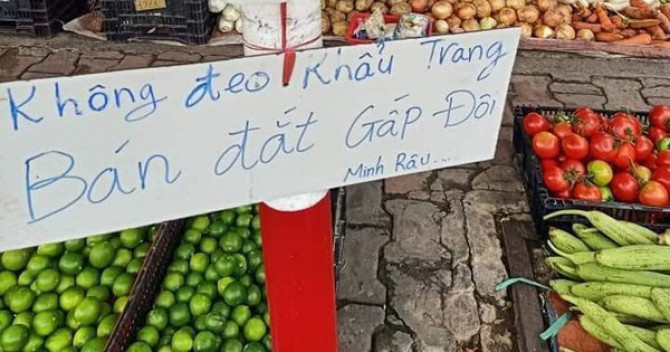 Không đeo Khẩu Trang
Bán đắt Gấp Đôi
Minh Râu...